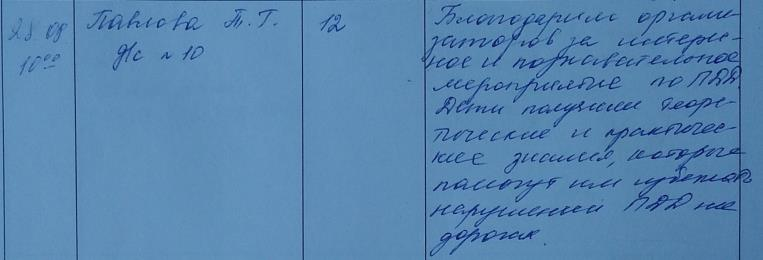 28 08
10 00
Павлова Т. Г.
д/с № 10
12
Благодарим органи-
заторов за интерес-
ное и познавательное
мероприятие по ПДД.
Дети получили теоре-
тические и практичес-
кие знания, которые
помогут им избежать
нарушений ПДД на
дорогах.